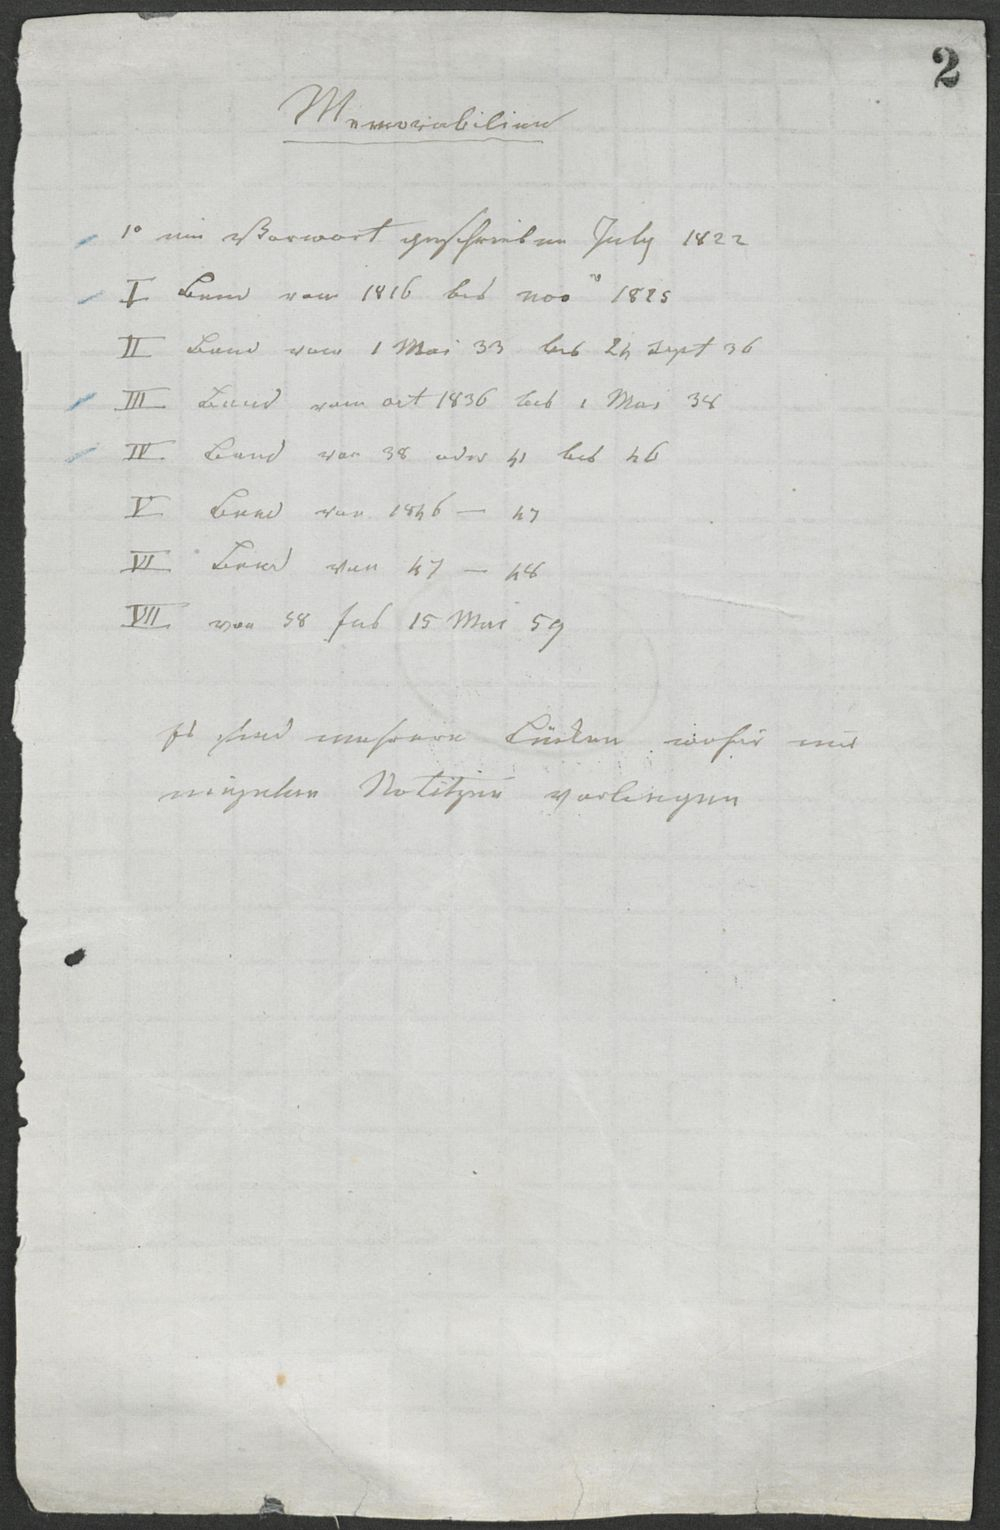 2
Memorabilien
1º ein Vorwort geschrieben July 1822
I Band von 1816 bis nov 1825
II Band vom 1 Mai 33 bis 24 Sept 36
III Band vom oct 1836 bis 1 Mai 38
IV Band von 38 oder 41 bis 46
V Band von 1846 — 47
VI Band von 47 — 48
VII von 58 bis 15 Mai 59
Es sind mehrere Lücken wofür nur
einzelne Notitzen vorliegen